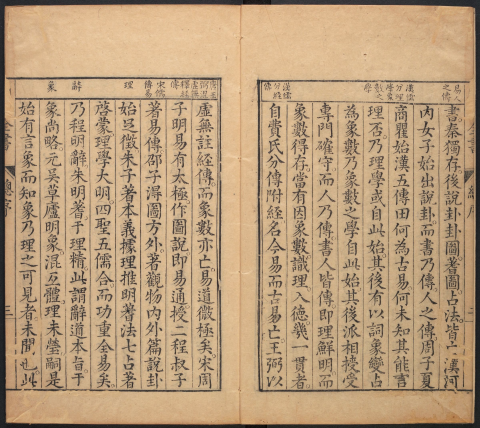 易人之傳
漢儒分理學象數之學
漢儒分經傳
書秦獨存後說卦卦圖蓍圖占法皆亡漢河
內女子始出說卦而書乃傳人之傳周子夏
商瞿始漢五傳田何為古易何未知其能言
理否乃理學或自此始其後有以詞象變占
為象數乃象數之學自此始其後派相授受
專門確守而人乃傳書人皆傳即理鮮明而
象數得存當有因象數識理入德幾一貫者
自費氏分傳附經名今易而古易亡王弼以
宋儒傳易
理
辭
象
虛無註經傳而象數亦亡易道微極矣宋周
子明易有太極作圖說即易通授二程叔子
著易傳邵子得圖方外著觀物內外篇說卦
始具徵朱子著本義據理推明蓍法七占著
啓蒙理學大明四聖五儒合而功重全易矣
乃程明辭朱明蓍于理精此謂辭道本旨于
象尚略元吳草廬明象混互體理未瑩嗣是
始有言象而知象乃理之可見者未聞也此
全書
總序
三